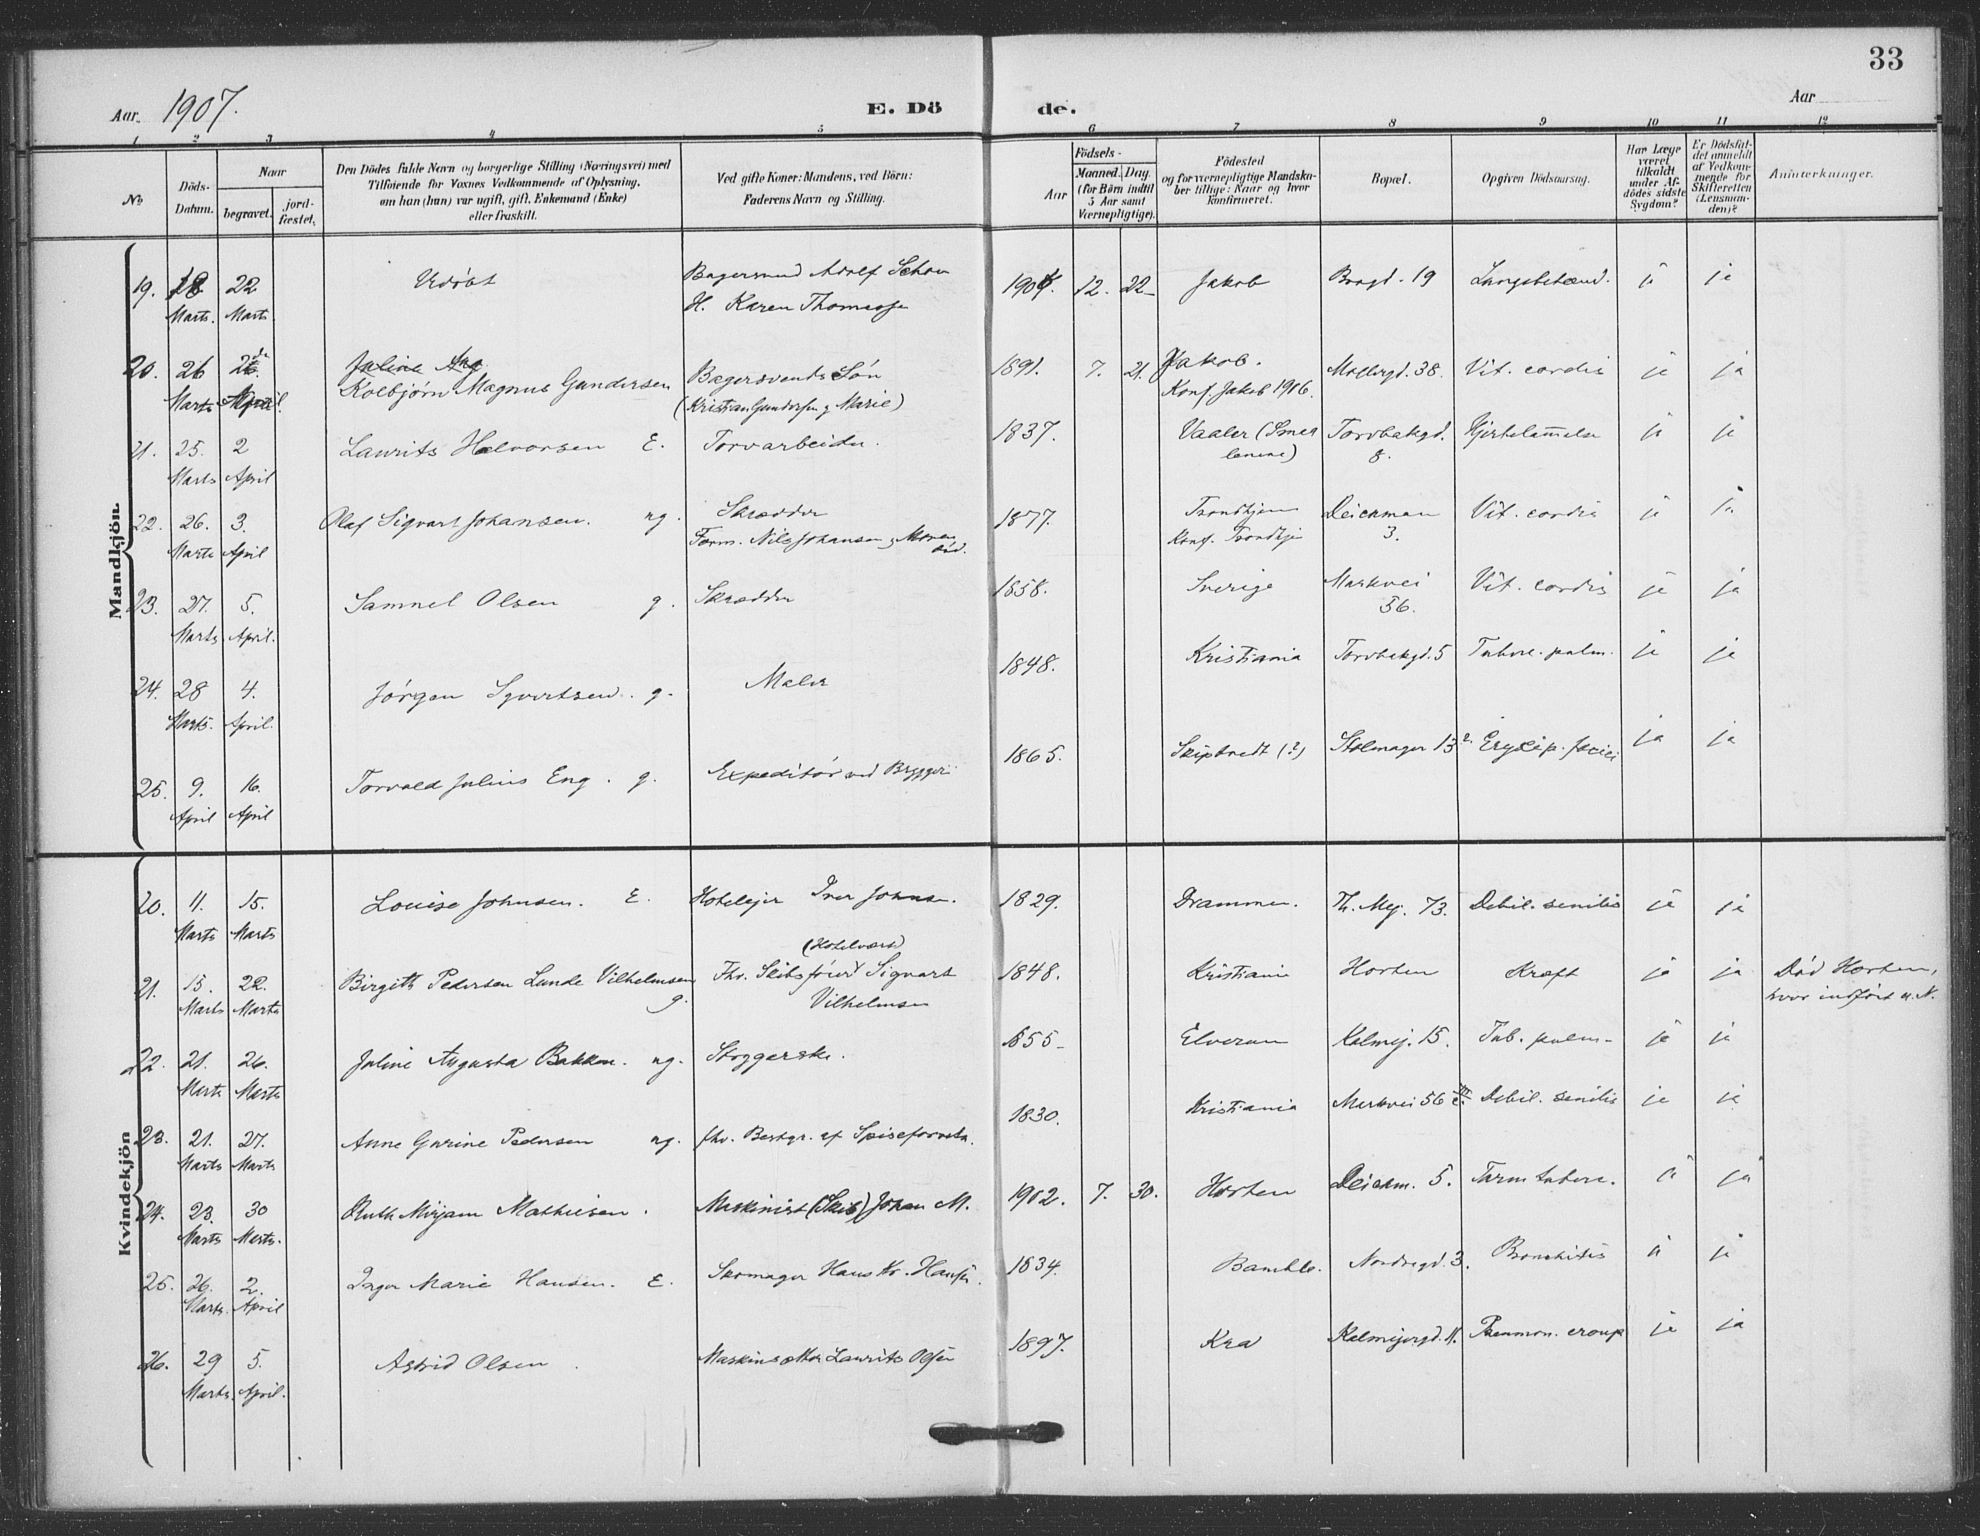 33
Aar 1907.
E. Dö de.
Aar
1 2 3 4 5 6 7 8 9 10 11 12
No
Döds-Datum.
Naar
begravet.
jordfæstet.
Den Dödes fulde Navn og borgerlige Stilling (Næringsvei) med
Tilføiende for Voxnes Vedkommende af Oplysning.
om han (hun) var ugift, gift, Enkemand (Enke)
eller fraskilt.
Ved gifte Koner: Mandens, ved Börn:
Faderens Navn og Stilling.
Födsels-
Aar
Maaned. Dag.
(for Börn indtil
5 Aar samt
Værnepligtige).
Födested
og for værnepligtige Mandskaber tillige: Naar og hvor
konfirmeret.
Bopæl.
Opgiven Dödsaarsag.
Har Læge
været
tilkaldt
under Afdödes sidste
Sygdom?
Er Dödsfaldet anmeldt
af Vedkommende for
Skifteretten
(Lensmanden)?
Anmerkninger.
Mandkjön.
19. 18 Marts. 22 Marts. Udöbt Bagersvend Adolf Schou 1904. 12. 22 Jakob Brogd. 19 Lungebetænd. ja ja
H. Karen Thomassen
20. 26 Marts April. Kolbjørn Magnus Gundersen Bagersvends Søn 1891. 7. 21. Jakob. Møllergd. 38. Vit. cordis ja ja
(Kristian Gundersen og Marie) Konf. Jakob 1906.
21. 25. Marts 2 April Laurits Halvorsen E. Torvarbeider. 1837. Vaaler (Smaalenene) Torvbakgd. 8. Hjertelammelse ja ja
22. 26. Marts 3. April Olaf Sigvart Johansen. ug. Skrædder 1877. Trondhjem Deichman 3. Vit. cordis ja ja
Form. Nils Johansen Konf. Trondhjem
23. 27. Marts 5. April. Samuel Olsen g. Skrædder 1858. Sverige Markvei 56. Vit. cordis ja ja
24. 28 Marts. 4. April. Jörgen Syvertsen. g. Maler 1848. Kristiania Torvbakgd. 5 Tuberc. pulm. ja ja
25. 9. April 16. April Torvald Julius Eng. g. Expeditör ved Bryggeri 1865. Skiptvedt (?) Stolmager 13 Erysip. faciei ja ja
Kvindekjön
20. 11. Marts 15. Marts Louise Johnsen. E. Hoteleier Iver Johnsen. 1829. Drammen. Th. Mej. 73. Debil. senilis ja ja
(Hotelvært)
21. 15. Marts 22. Marts Birgith Pedersen Lunde Vilhelmsen g. Fhv. Skibsförer Sigvart Vilhelmsen 1848. Kristiania Horten Kræft ja ja Död Horten, hvor indfört u. N.
22. 21. Marts 26. Marts Juline Augusta Bakken. ug. Stryggerske. 1855 Elverum Kalmej. 15. Tub. pulm. ja ja
23. 21. Marts 27. Marts Anne Gurine Pedersen ug. fhv. Bestyr. af Spiseforretn. 1830. Kristiania Markvei 56 c. III Debil. senilis ja ja
24. 23. Marts 30 Marts. Ruth Mirjam Mathiesen. Maskinist (Skib) Johan M. 1902. 7. 30. Horten Deichm. 5. Tarmtuberc. ja ja
25. 26. Marts. 2. April Inger Marie Hansen. E. Skomager Hans Kr. Hansen. 1834. Bamble. Nordregd. 3. Bronchitis ja ja
26. 29 Marts. 5. April. Astrid Olsen. Laurits Olsen 1897. Kra Kalmejergd. 11. Pneumon. croup ja ja